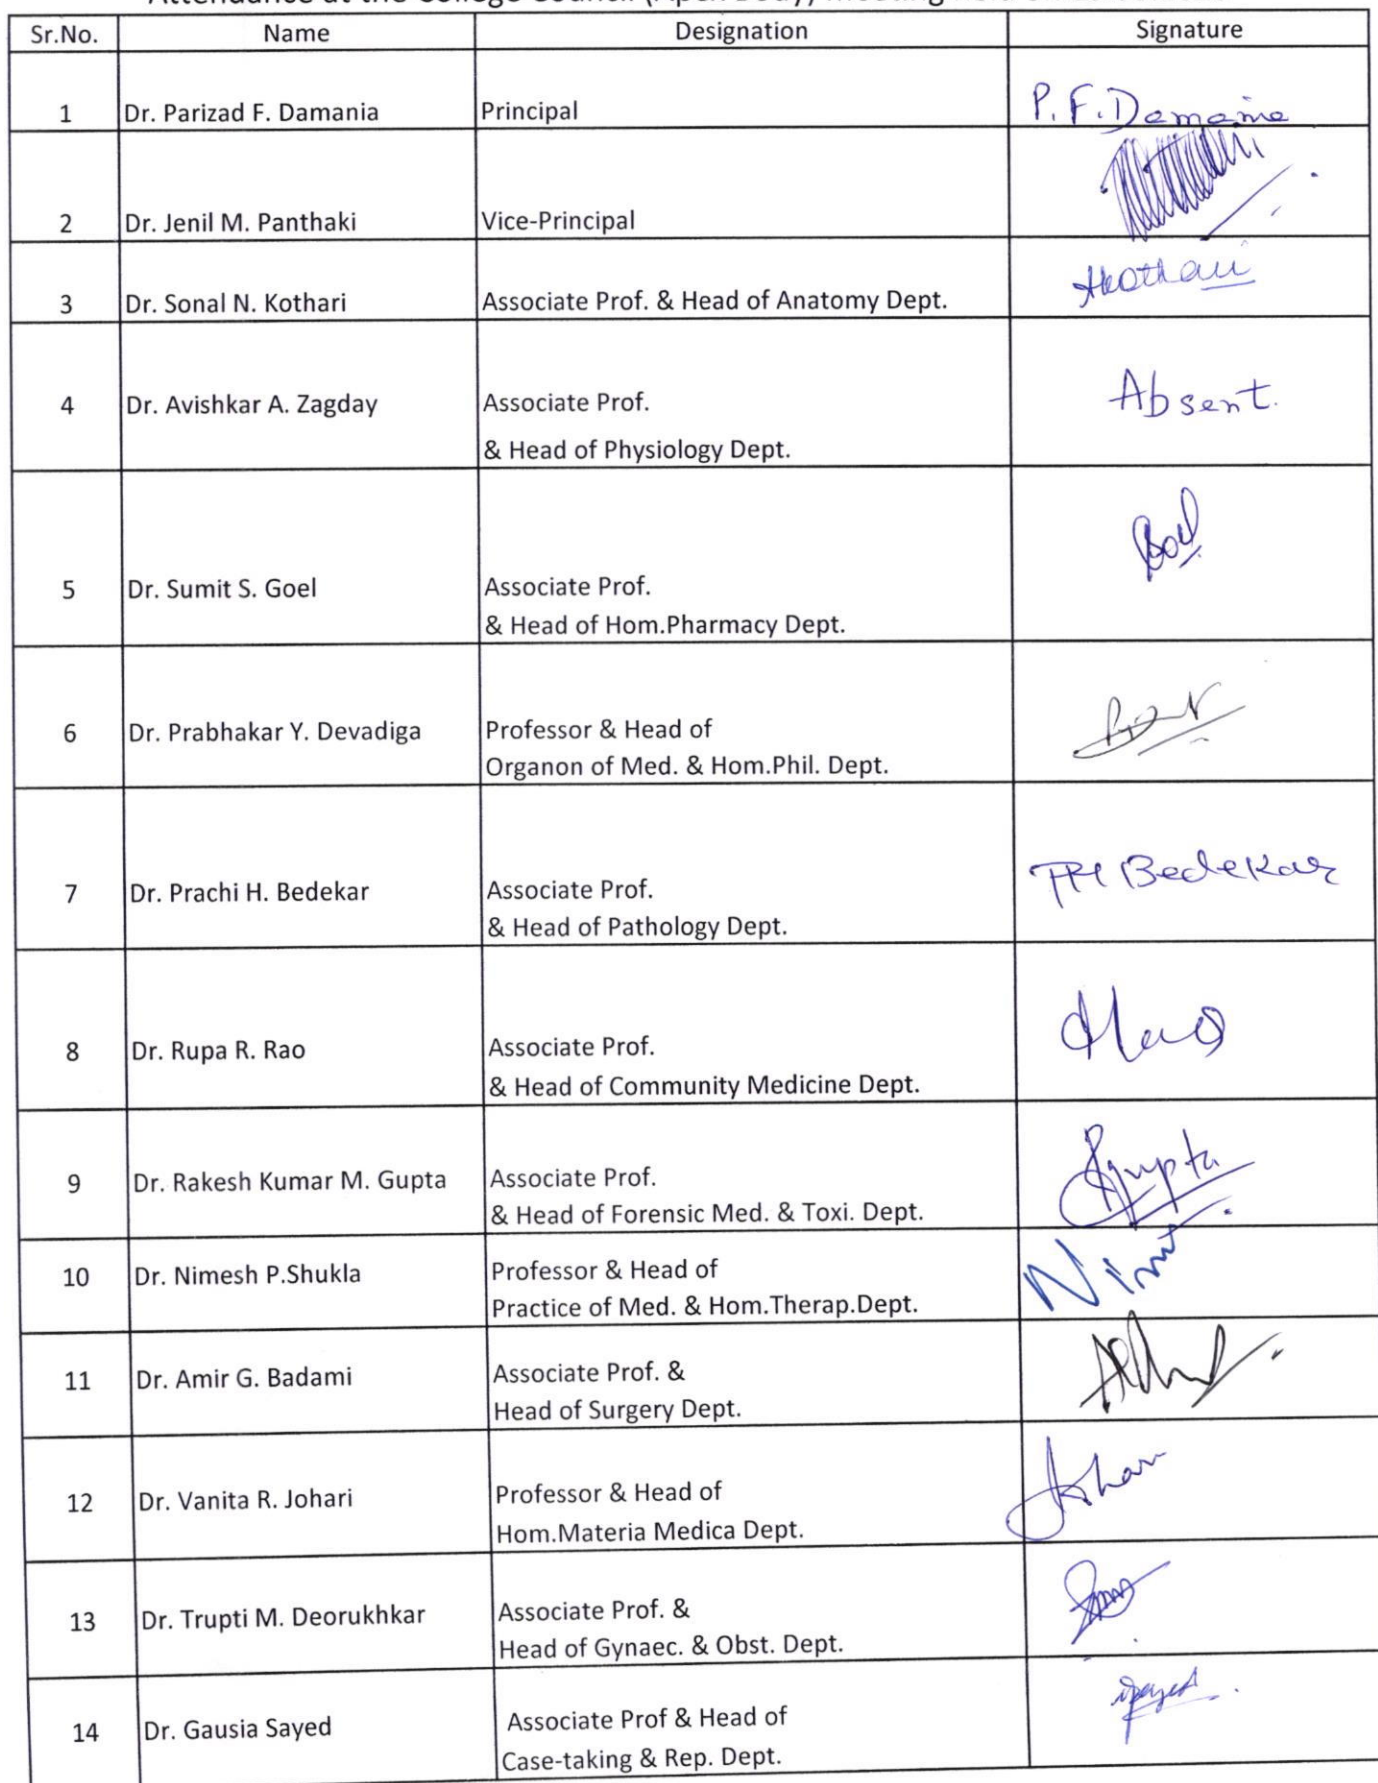 Attendance at the College Council (Apex Body) Meeting held on
Sr.No. Name Designation Signature
1 Dr. Parizad F. Damania Principal P. F. Damania
2 Dr. Jenil M. Panthaki Vice-Principal
3 Dr. Sonal N. Kothari Associate Prof. & Head of Anatomy Dept. Kothari
4 Dr. Avishkar A. Zagday Associate Prof. Absent.
& Head of Physiology Dept.
5 Dr. Sumit S. Goel Associate Prof.
& Head of Hom.Pharmacy Dept.
6 Dr. Prabhakar Y. Devadiga Professor & Head of
Organon of Med. & Hom.Phil. Dept.
7 Dr. Prachi H. Bedekar Associate Prof. PH Bedekar
& Head of Pathology Dept.
8 Dr. Rupa R. Rao Associate Prof.
& Head of Community Medicine Dept.
9 Dr. Rakesh Kumar M. Gupta Associate Prof. Gupta
& Head of Forensic Med. & Toxi. Dept.
10 Dr. Nimesh P.Shukla Professor & Head of
Practice of Med. & Hom.Therap.Dept.
11 Dr. Amir G. Badami Associate Prof. &
Head of Surgery Dept.
12 Dr. Vanita R. Johari Professor & Head of
Hom.Materia Medica Dept.
13 Dr. Trupti M. Deorukhkar Associate Prof. &
Head of Gynaec. & Obst. Dept.
14 Dr. Gausia Sayed Associate Prof & Head of
Case-taking & Rep. Dept.